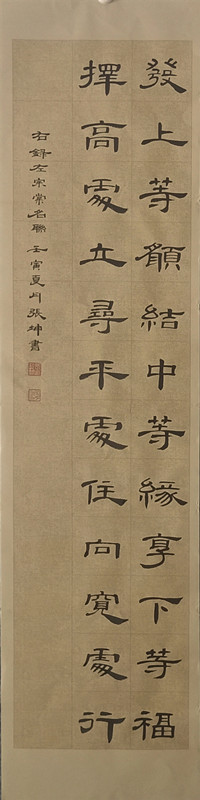 發上等願結中等緣享下等福
擇高處立尋平處住向寬處行
右錄左宗棠名聯 壬寅夏月張坤書